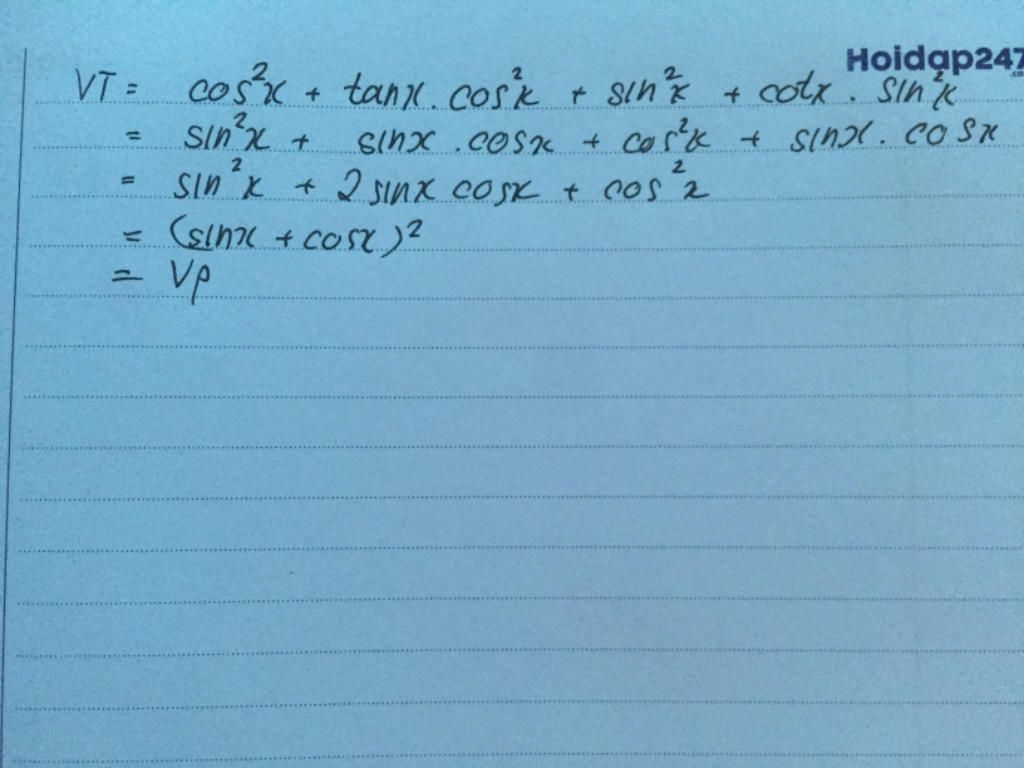 Hoidap247
.co
VT = cos²x + tanx . cos²x + sin²x + cotx . sin²x
= sin²x + sinx . cosx + cos²x + sinx . cosx
= sin²x + 2 sinx cosx + cos²x
= (sinx + cosx)²
= Vp